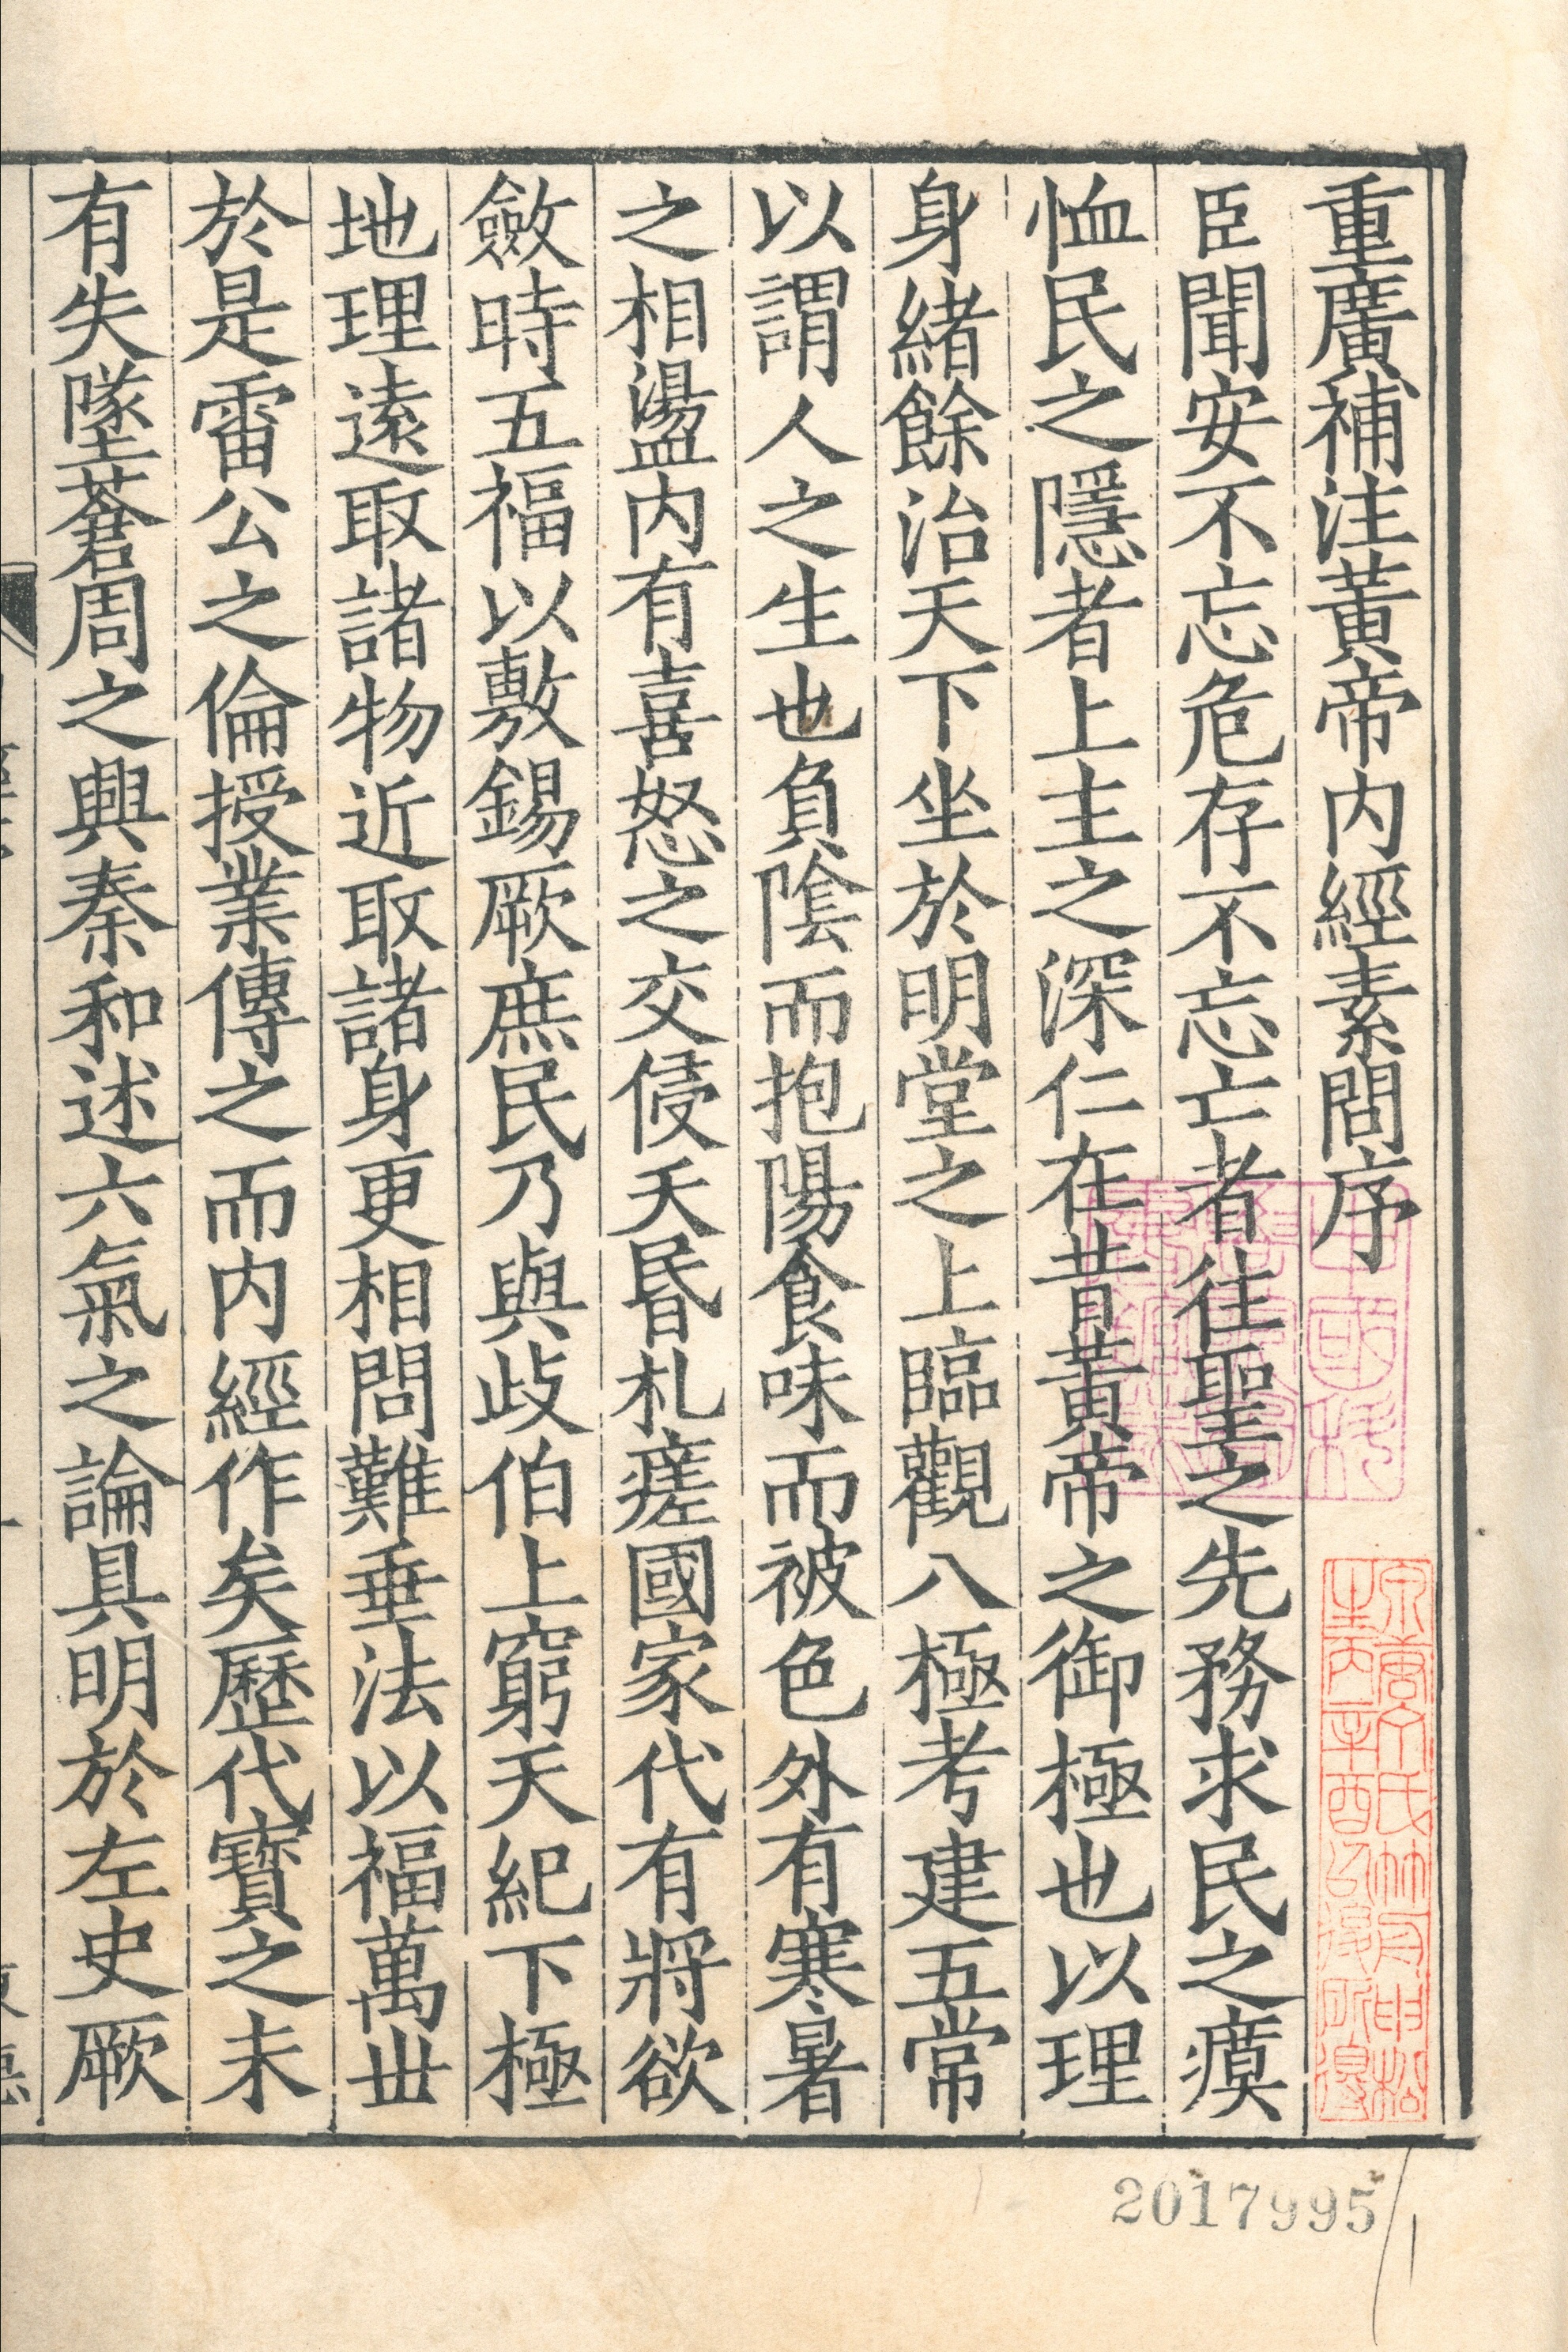 重廣補注黃帝内經素問序
臣聞安不忘危存不忘亡者往聖之先務求民之瘼
恤民之隱者上主之深仁在昔黃帝之御極也以理
身緒餘治天下坐於明堂之上臨觀八極考建五常
以謂人之生也負陰而抱陽食味而被色外有寒暑
之相盪内有喜怒之交侵夭昬札瘥國家代有將欲
斂時五福以敷錫厥庶民乃與歧伯上窮天紀下極
地理遠取諸物近取諸身更相問難垂法以福萬丗
於是雷公之倫授業傳之而内經作矣歷代寶之未
有失墜蒼周之興秦和述六氣之論具明於左史厥
2017995